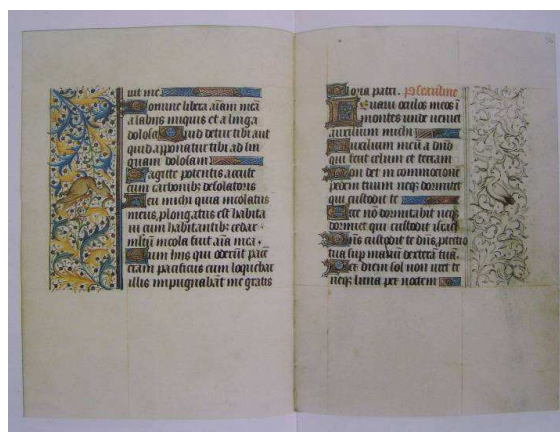 uit me
Domine libera aīam meā
a labijs iniquis et a linga
dolosa Quid detur tibi aut
quid apponatur tibi ad lin
guam dolosam
Sagitte potentis acute
cum carbonibꝫ desolatorijs
Heu michi quia incolatus
meus plongatus est habita
ui cum habitantibꝫ cedar
multū incola fuit aīa mea
Cum hijs qui oderūt pacē
eram pacificus cum loquebar
illis impugnabāt me gratis
Gloria patri.
Leuaui oculos meos ī
montes unde ueniet
auxilium michi
Auxilium meū a dn̄o
qui fecit celum et terram
Non det in commocione
pedem tuum neqꝫ dormitet
qui custodit te
Ecce nō dormitabit neqꝫ
dormiet qui custodit israel
Dn̄s custodit te dn̄s ptectio
tua sup manū dexterā tuā.
Per diem sol non uret te
neqꝫ luna per noctem